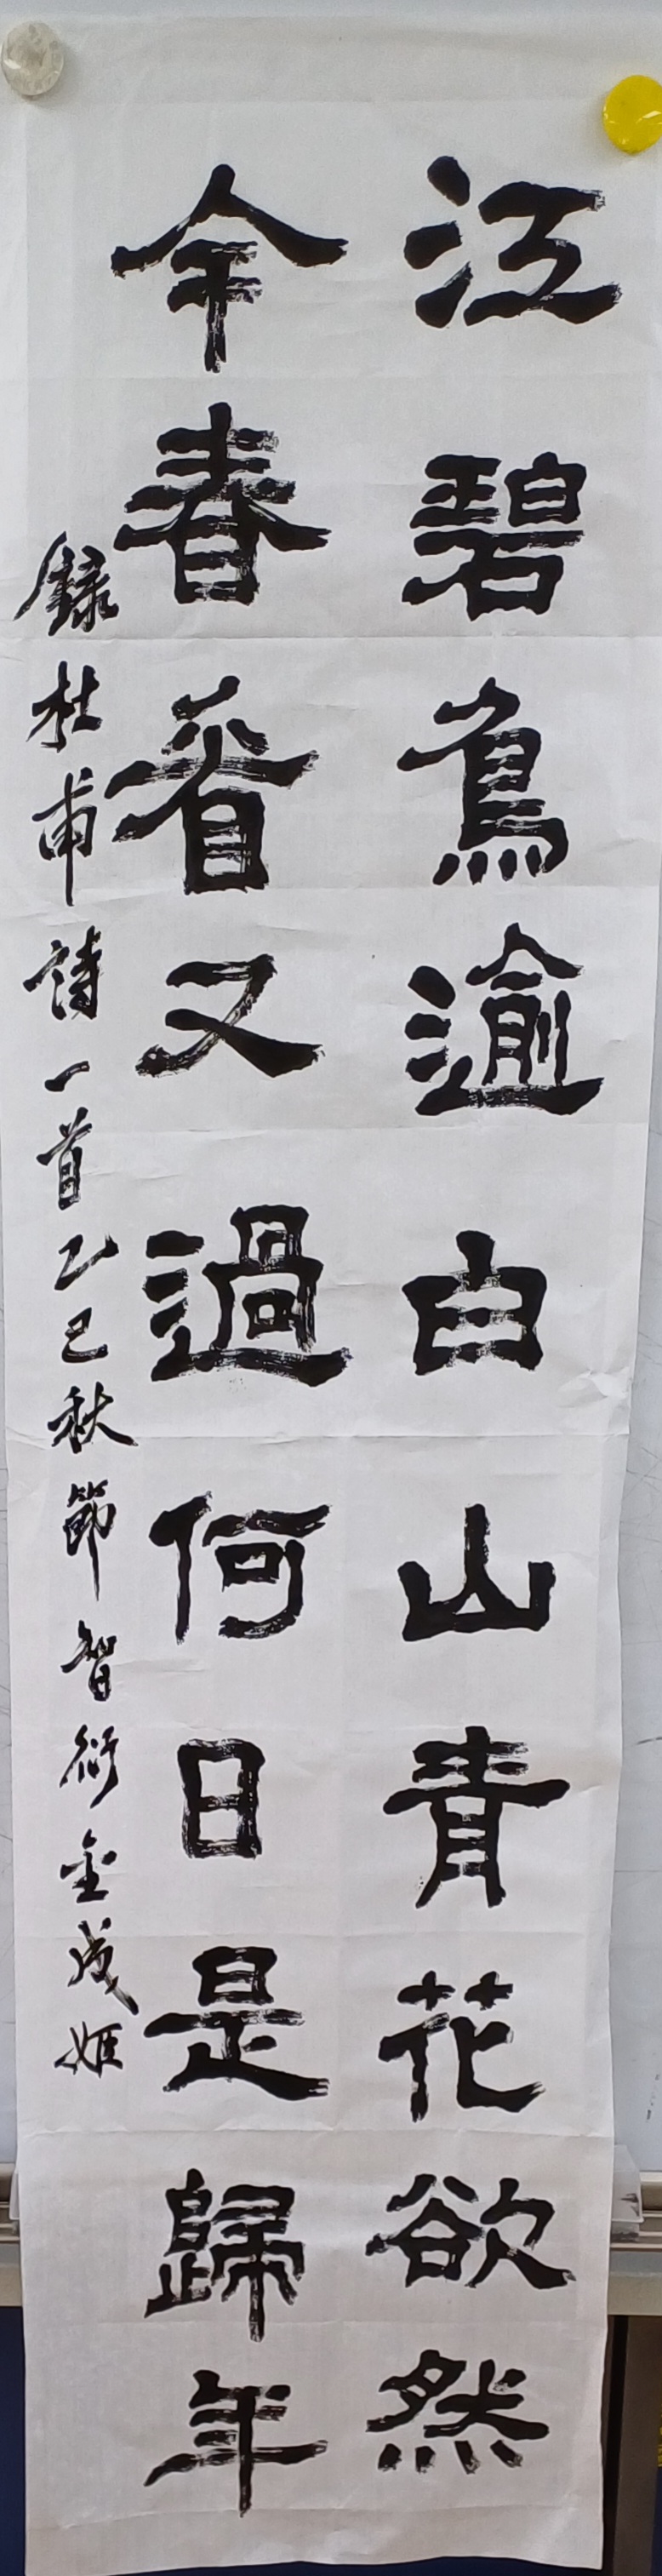 江碧鳥逾白山青花欲然
今春看又過何日是歸年
錄杜甫詩一首乙巳秋節智衍金成姬